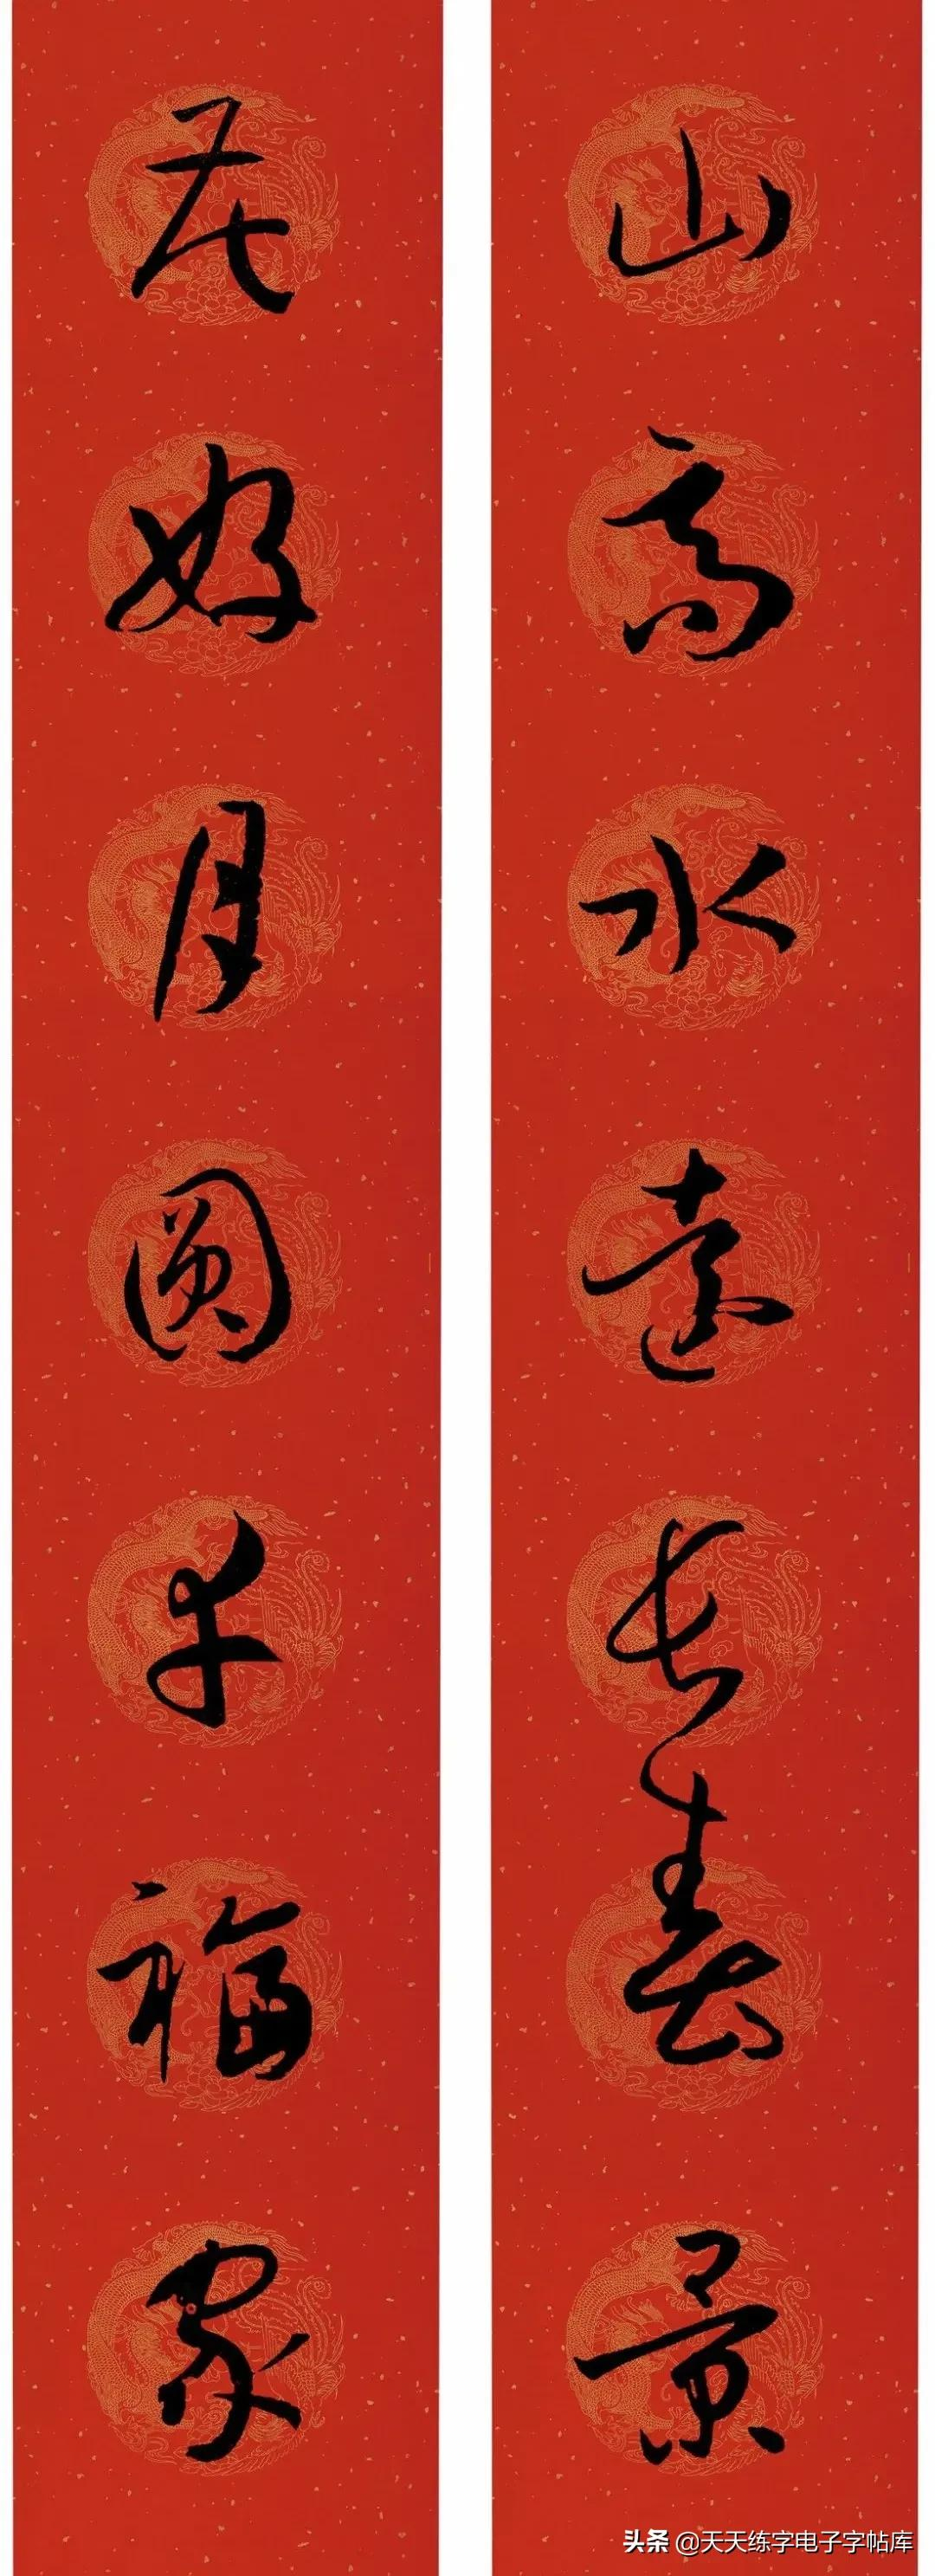 山高水远长春景
花好月圆幸福家
头条 @天天练字电子字帖库